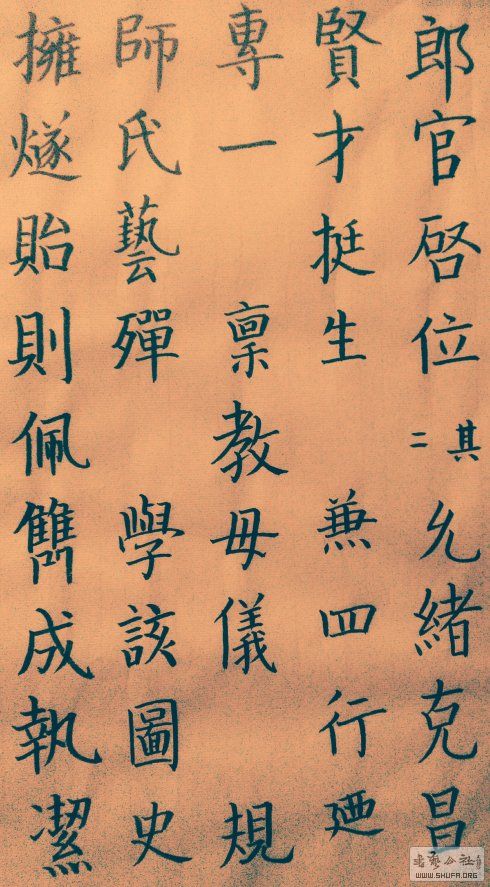 郎官啓位 其二 允緒克昌
賢才挺生 兼四行廼
專一 稟教母儀 規
師氏藝殫 學該圖史
擁燧貽則佩成執潔
书艺公社
WWW.SHUFA.ORG